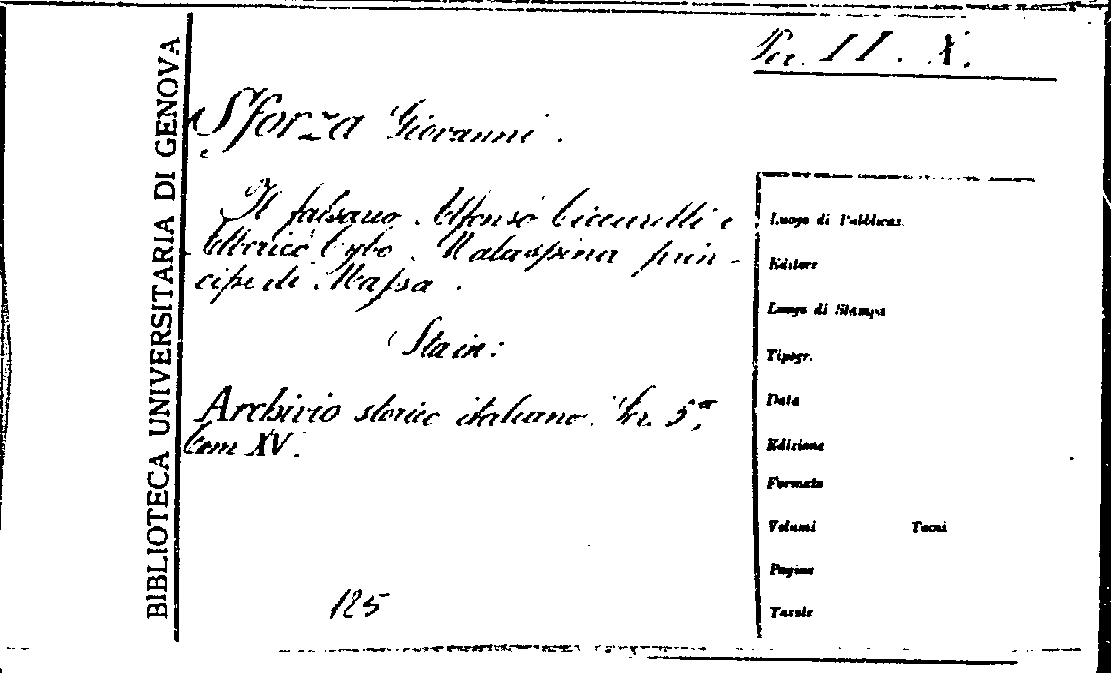 BIBLIOTECA UNIVERSITARIA DI GENOVA
Per. II. X.
Sforza Giovanni.
Il falsario Alfonso Ciccarelli e
Alberico Cybo Malaspina prin-
cipe di Massa.
Sta in:
Archivio storico italiano. Ser. 5ª,
tom XV.
125
Luogo di Pubblicaz.
Editore
Luogo di Stampa
Tipogr.
Data
Edizione
Formato
Volumi Tomi
Pagine
Tavole